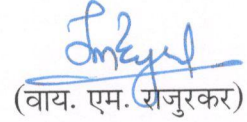 (वाय. एम. राजुरकर)